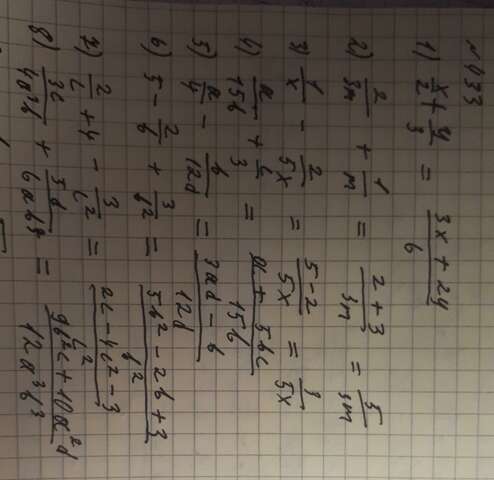 № 433
1) x/2 + y/3 = (3x + 2y)/6
2) 2/3m + 1/m = (2 + 3)/3m = 5/3m
3) 1/x - 2/5x = (5 - 2)/5x = 3/5x
4) a/15b + c/3 = (a + 5bc)/15b
5) a/4 - b/12d = (3ad - b)/12d
6) 5 - 2/b + 3/b² = (5b² - 2b + 3)/b²
7) 2/c + 4 - 3/c² = (2c - 4c² - 3)/c²
8) 3c/4a³b + 5d/6ab³ = (9b²c + 10a²d)/12a³b³